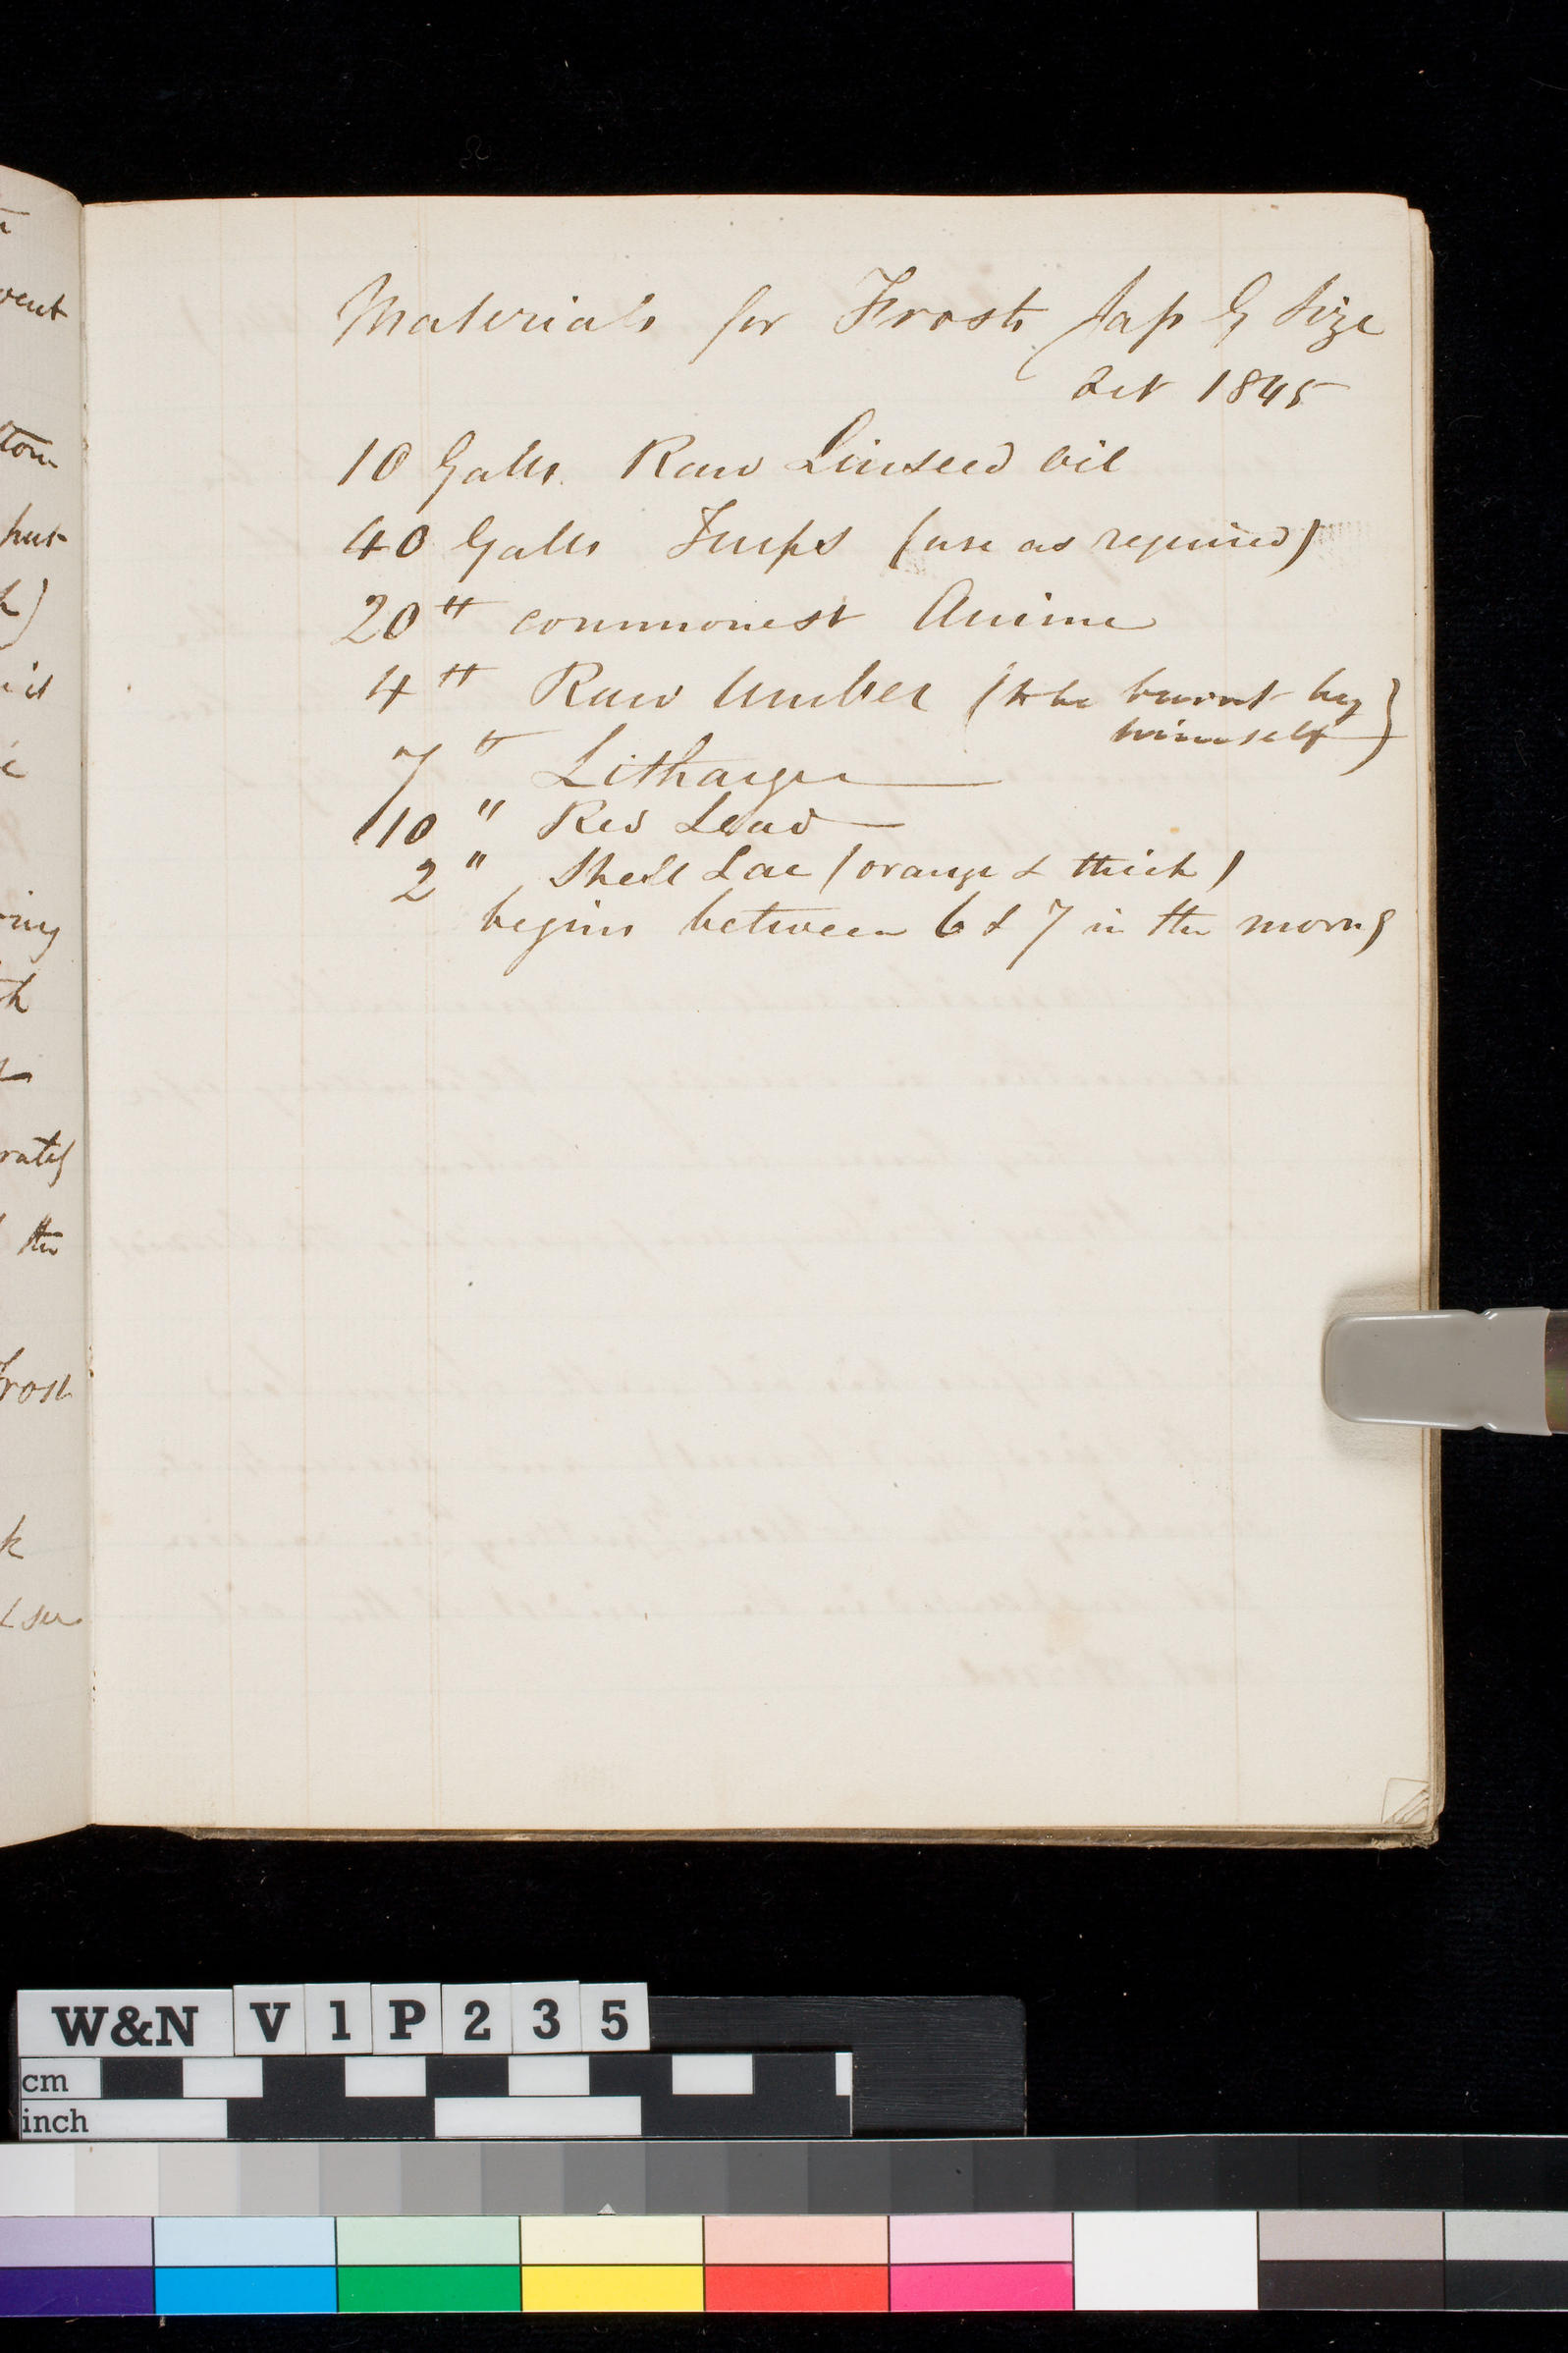 Materials for Frosts Jap G Size
Oct 1845
10 Galls. Raw Linseed oil
40 Galls Turps (use as required)
20 tt commonest Anime
4 tt Raw Umber (to be burnt by
himself)
7 tt Litharge
10 " Red Lead
2 " Shell Lac (orange & thick)
begins between 6 & 7 in the morng
vent
tom
put
it
ing
th
rately
the
Frost
k
& see
W&N V1P235
cm
inch